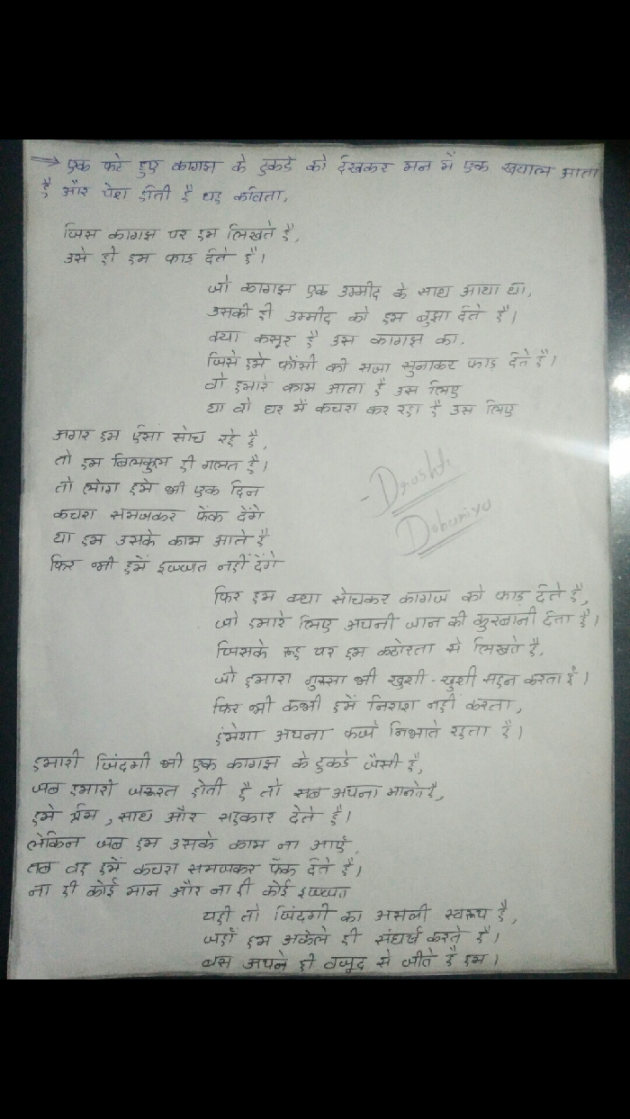 ⇒ एक फटे हुए कागझ के टुकडे को देखकर मन में एक खयाल आता
है और पेश होती है यह कविता,
जिस कागझ पर हम लिखते है,
उसे ही हम फाड देते है।
जो कागझ एक उम्मीद के साथ आया था,
उसकी ही उम्मीद को हम बुझा देते है।
क्या कसूर है उस कागझ का,
जिसे हमे फाँसी की सजा सुनाकर फाड देते है।
वो हमारे काम आता है उस लिए
या वो घर में कचरा कर रहा है उस लिए
अगर हम ऐसा सोच रहे है,
तो हम बिलकुल ही गलत है।
तो लोग हमे भी एक दिन
कचरा समजकर फेंक देंगे
या हम उसके काम आते है
फिर भी हमें इज्जत नहीं देंगे
- Drashti
Dobariya
फिर हम क्या सोचकर कागज को फाड देते है,
जो हमारे लिए अपनी जान की कुरबानी देता है।
जिसके रूह पर हम कठोरता से लिखते है,
जो हमारा गुस्सा भी खुशी-खुशी सहन करता है।
फिर भी कभी हमें निराश नहीं करता,
हंमेशा अपना फर्ज निभाते रहता है।
हमारी जिंदगी भी एक कागझ के टुकडे जैसी है,
जब हमारी जरूरत होती है तो सब अपना मानते है,
हमे प्रेम, साथ और सहकार देते है।
लेकिन जब हम उसके काम ना आएँ,
तब वह हमें कचरा समजकर फेंक देते है।
ना ही कोई मान और ना ही कोई इज्जत
यही तो जिंदगी का असली स्वरूप है,
जहाँ हम अकेले ही संघर्ष करते है।
बस अपने ही वजूद से जीते है हम।